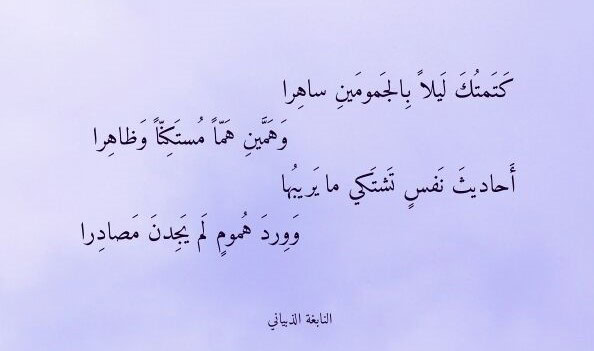 كَتَمتُكَ لَيلاً بِالجَمومَينِ ساهِرا
وَهَمَّينِ هَمّاً مُستَكِنّاً وَظاهِرا
أَحاديثَ نَفسٍ تَشتَكي ما يَريبُها
وَوِردَ هُمومٍ لَم يَجِدنَ مَصادِرا
النابغة الذبياني